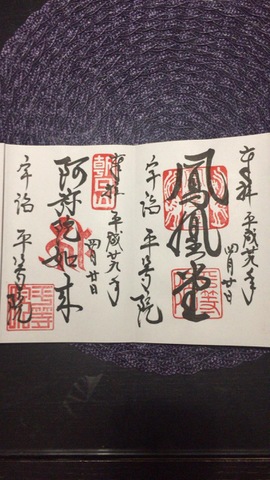 奉拝 平成廿九年
四月廿日
鳳凰堂
宇治 平等院
奉拝 平成廿九年
四月廿日
朝日山
阿弥陀如来
宇治 平等院